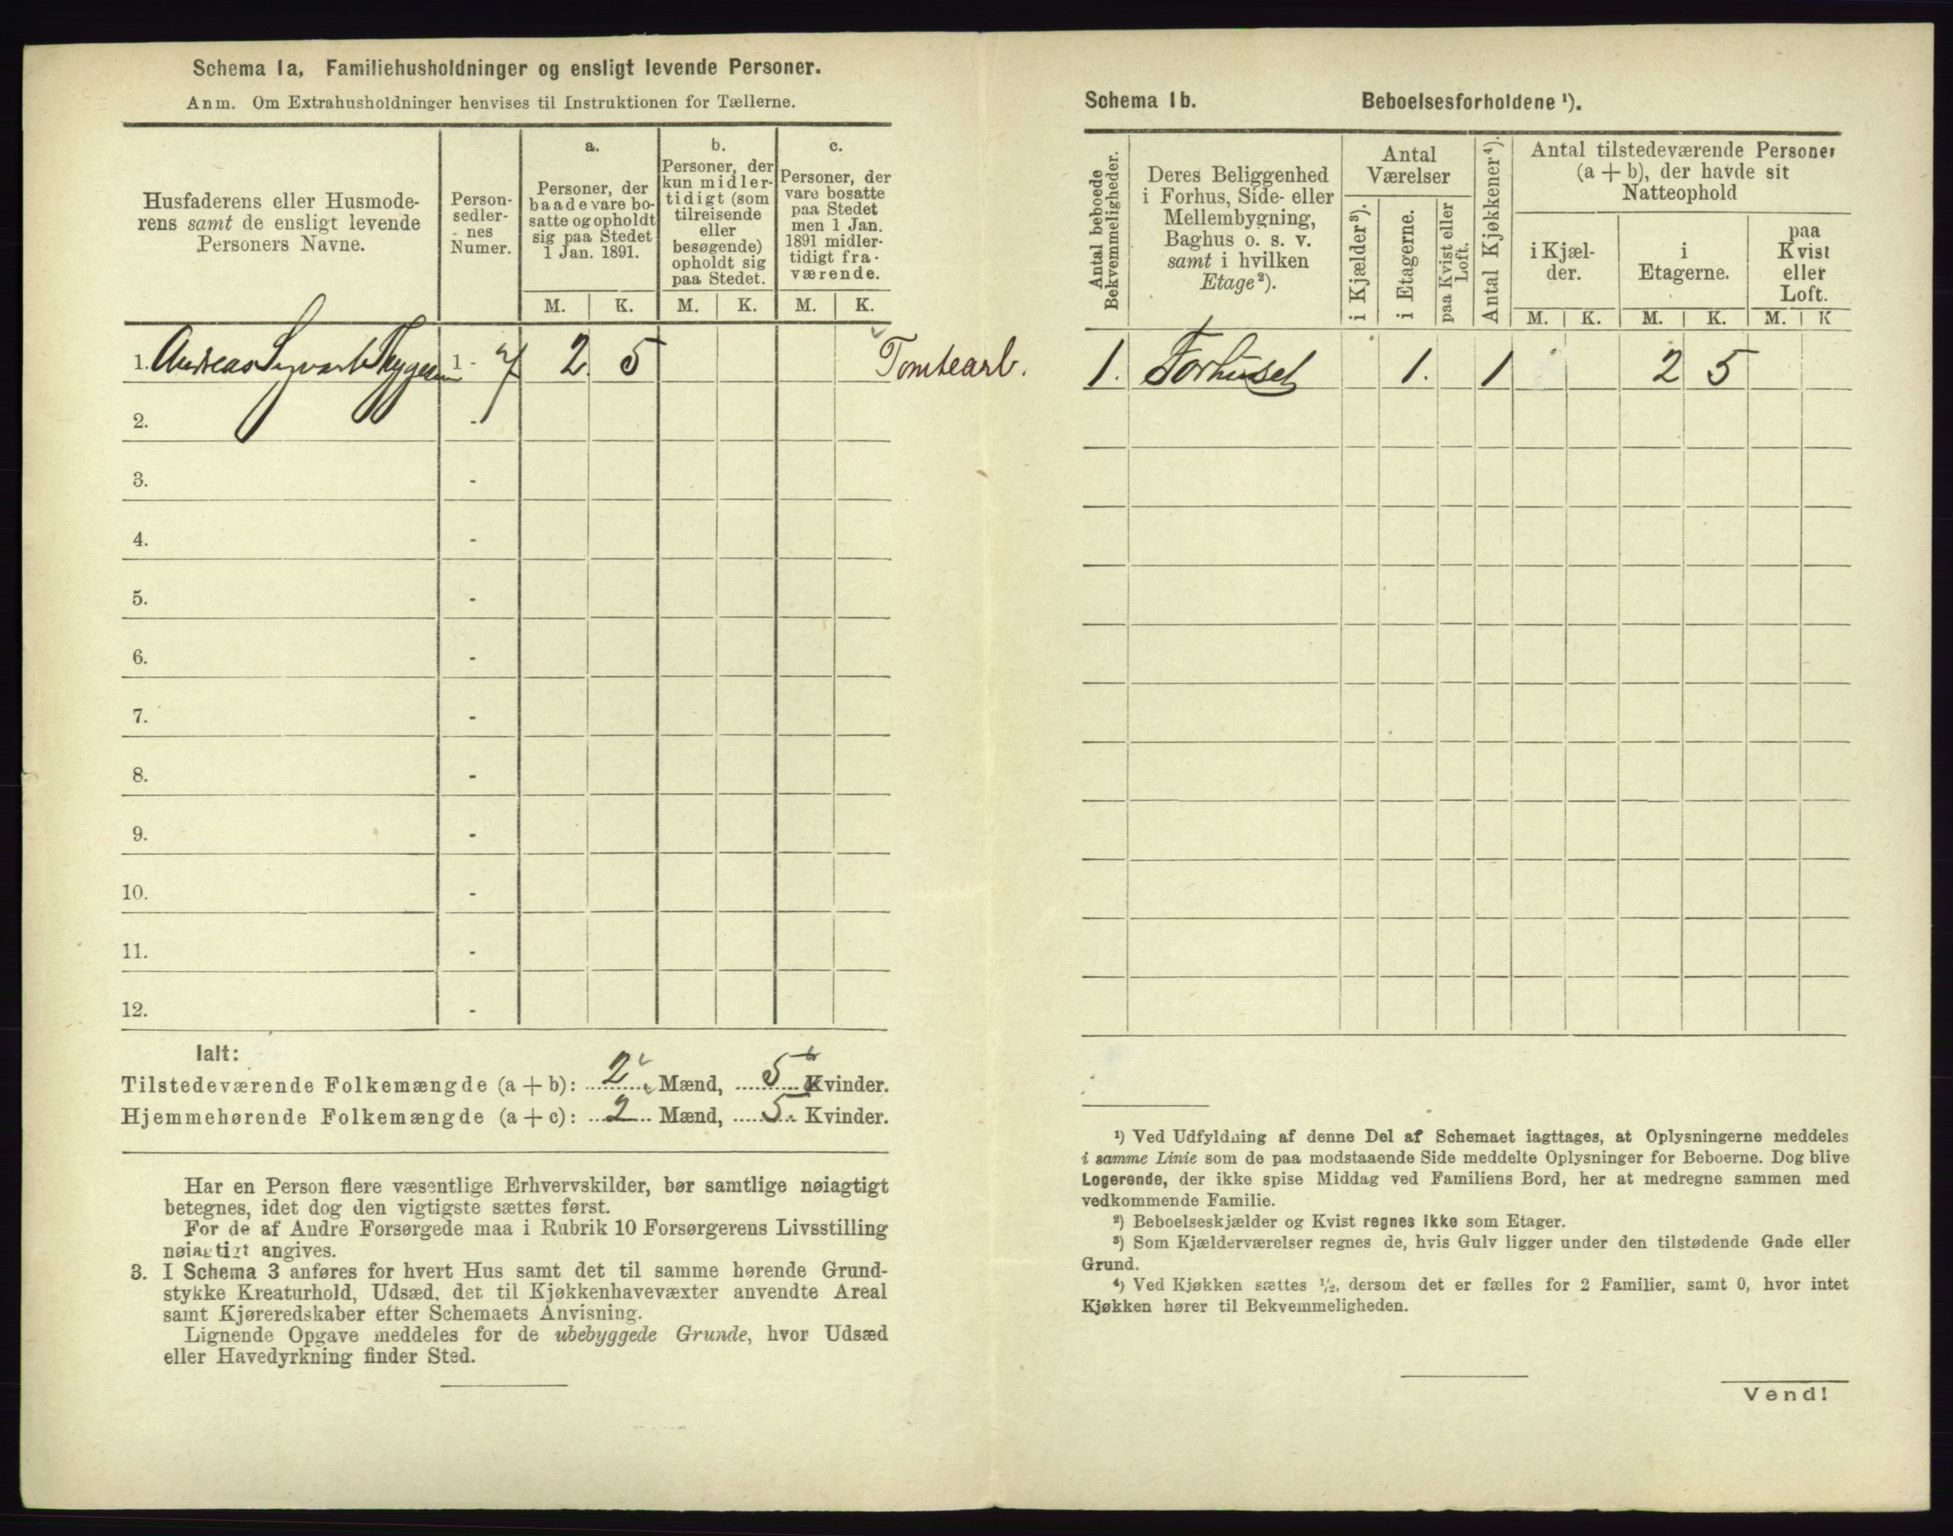 Schema 1a, Familiehusholdninger og ensligt levende Personer.
Anm. Om Extrahusholdninger henvises til Instruktionen for Tællerne.
Husfaderens eller Husmode-
rens samt de ensligt levende
Personers Navne.
Person-
sedler-
nes
Numer.
a.
Personer, der
baade vare bo-
satte og opholdt
sig paa Stedet
1 Jan. 1891.
b.
Personer, der
kun midler-
tidigt (som
tilreisende
eller
besøgende)
opholdt sig
paa Stedet.
c.
Personer, der
vare bosatte
paa Stedet
men 1 Jan.
1891 midler-
tidigt fra-
værende.
M. K. M. K. M. K.
1. Andreas Syvart Thygesen 1 - 7 2 5 Tomtearb.
2. -
3. -
4. -
5. -
6. -
7. -
8. -
9. -
10. -
11. -
12. -
Ialt:
Tilstedeværende Folkemængde (a + b): 2 Mænd, 5 Kvinder.
Hjemmehørende Folkemængde (a + c): 2 Mænd, 5 Kvinder.
Har en Person flere væsentlige Erhvervskilder, bør samtlige nøiagtigt
betegnes, idet dog den vigtigste sættes først.
For de af Andre Forsørgede maa i Rubrik 10 Forsørgerens Livsstilling
nøiagtigt angives.
3. I Schema 3 anføres for hvert Hus samt det til samme hørende Grund-
stykke Kreaturhold, Udsæd, det til Kjøkkenhavevæxter anvendte Areal
samt Kjøreredskaber efter Schemaets Anvisning.
Lignende Opgave meddeles for de ubebyggede Grunde, hvor Udsæd
eller Havedyrkning finder Sted.
Schema 1b. Beboelsesforholdene ¹).
Antal beboede
Bekvemmeligheder.
Deres Beliggenhed
i Forhus, Side- eller
Mellembygning,
Baghus o. s. v.
samt i hvilken
Etage²).
Antal
Værelser
i Kjælder³).
i Etagerne.
paa Kvist eller
Loft.
Antal Kjøkkener⁴).
Antal tilstedeværende Personer
(a + b), der havde sit
Natteophold
i Kjæl-
der.
i
Etagerne.
paa
Kvist
eller
Loft.
M. K. M. K. M. K
1. Forhuset 1. 1 2 5
¹) Ved Udfyldning af denne Del af Schemaet iagttages, at Oplysningerne meddeles
i samme Linie som de paa modstaaende Side meddelte Oplysninger for Beboerne. Dog blive
Logerende, der ikke spise Middag ved Familiens Bord, her at medregne sammen med
vedkommende Familie.
²) Beboelseskjælder og Kvist regnes ikke som Etager.
³) Som Kjælderværelser regnes de, hvis Gulv ligger under den tilstødende Gade eller
Grund.
⁴) Ved Kjøkken sættes ½, dersom det er fælles for 2 Familier, samt 0, hvor intet
Kjøkken hører til Bekvemmeligheden.
Vend!